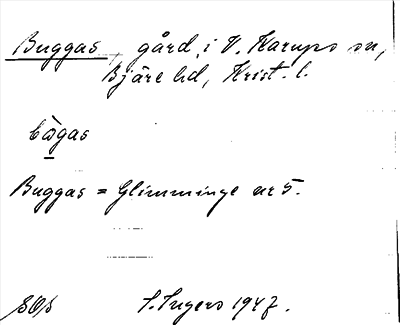 Buggas, gård i V. Karups sn,
Bjäre hd, Krist. l.
bògas
Buggas = Glimminge nr 5.
S. Ingers 1947.